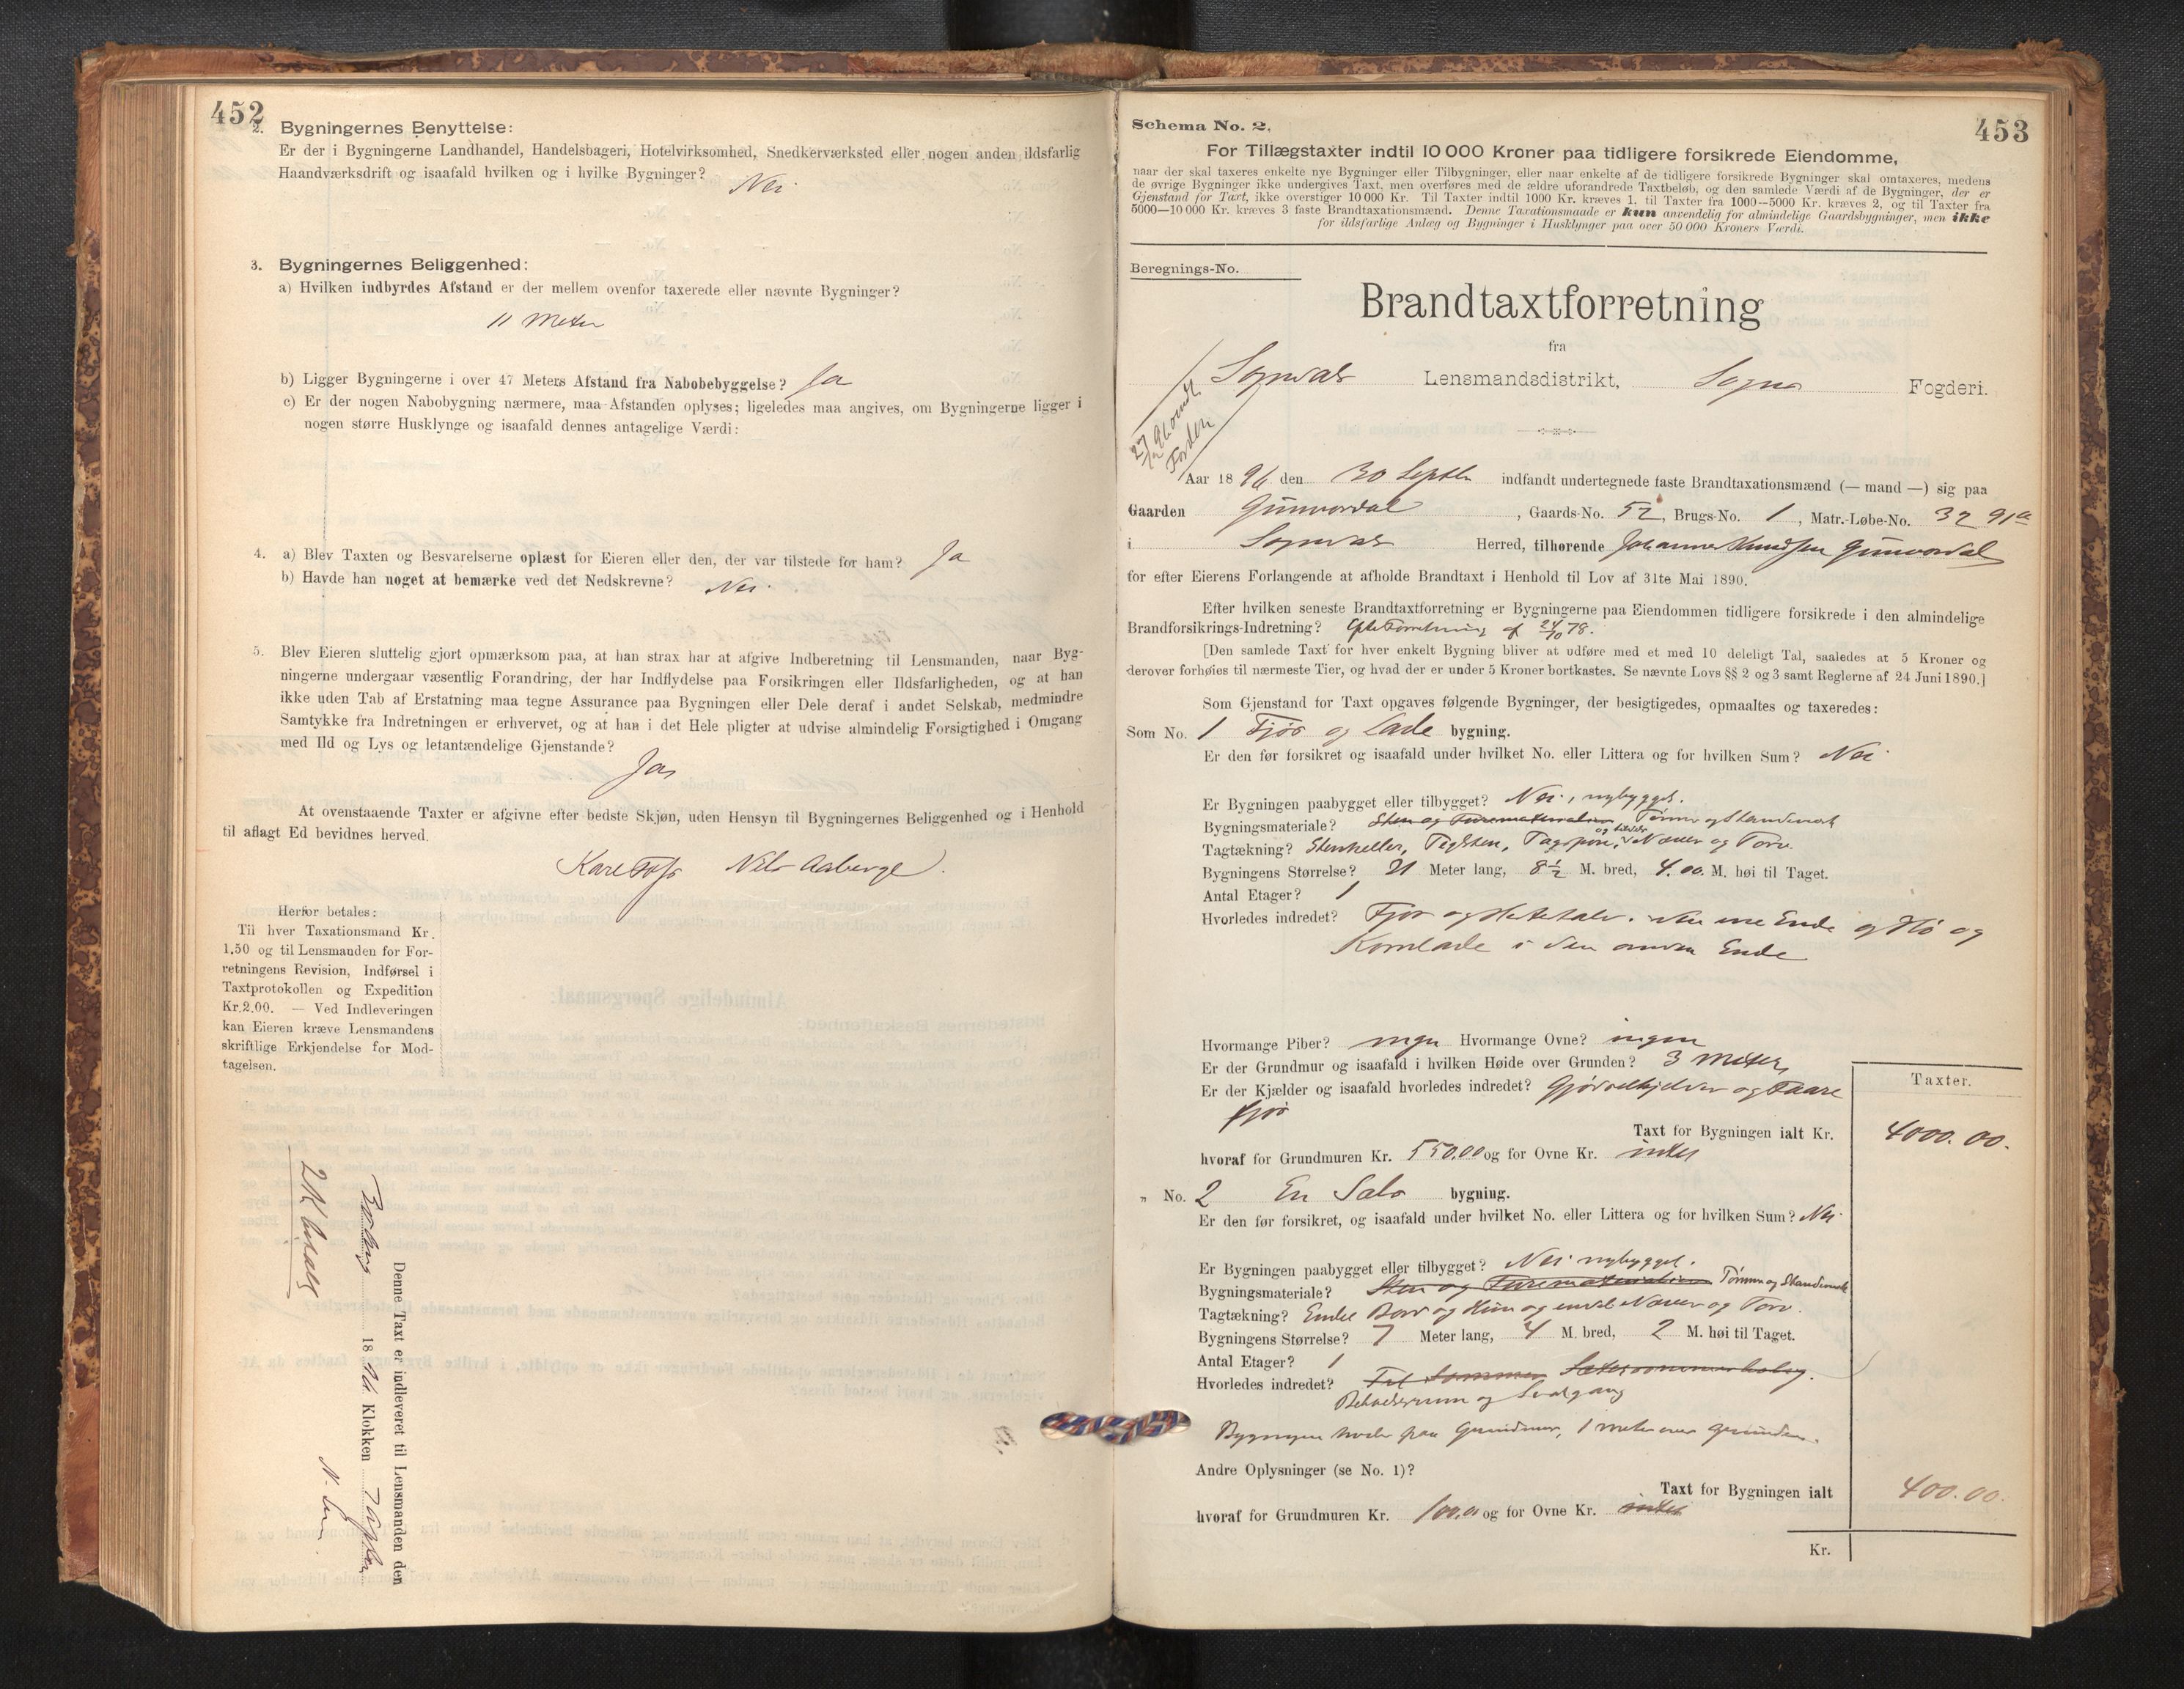 452
2. Bygningernes Benyttelse:
Er der i Bygningerne Landhandel, Handelsbageri, Hotelvirksomhed, Snedkerværksted eller nogen anden ildsfarlig
Haandværksdrift og isaafald hvilken og i hvilke Bygninger? Nei.
3. Bygningernes Beliggenhed:
a) Hvilken indbyrdes Afstand er der mellem ovenfor taxerede eller nævnte Bygninger?
11 Meter
b) Ligger Bygningerne i over 47 Meters Afstand fra Nabobebyggelse? Ja
c) Er der nogen Nabobygning nærmere, maa Afstanden oplyses; ligeledes maa angives, om Bygningerne ligger i
nogen større Husklynge og isaafald dennes antagelige Værdi:
4. a) Blev Taxten og Besvarelserne oplæst for Eieren eller den, der var tilstede for ham? Ja
b) Havde han noget at bemærke ved det Nedskrevne? Nei.
5. Blev Eieren sluttelig gjort opmærksom paa, at han strax har at afgive Indberetning til Lensmanden, naar Byg-
ningerne undergaar væsentlig Forandring, der har Indflydelse paa Forsikringen eller Ildsfarligheden, og at han
ikke uden Tab af Erstatning maa tegne Assurance paa Bygningen eller Dele deraf i andet Selskab, medmindre
Samtykke fra Indretningen er erhvervet, og at han i det Hele pligter at udvise almindelig Forsigtighed i Omgang
med Ild og Lys og letantændelige Gjenstande?
Ja,
At ovenstaaende Taxter er afgivne efter bedste Skjøn, uden Hensyn til Bygningernes Beliggenhed og i Henhold
til aflagt Ed bevidnes herved.
Nils Aaberge.
Herfor betales:
Til hver Taxationsmand Kr.
1.50 og til Lensmanden for For-
retningens Revision, Indførsel i
Taxtprotokollen og Expedition
Kr. 2.00. — Ved Indleveringen
kan Eieren kræve Lensmandens
skriftlige Erkjendelse for Mod-
tagelsen.
Denne Taxt er indleveret til Lensmanden den
18 96. Klokken 7
2 K betalt
453
Schema No. 2.
For Tillægstaxter indtil 10 000 Kroner paa tidligere forsikrede Eiendomme,
naar der skal taxeres enkelte nye Bygninger eller Tilbygninger, eller naar enkelte af de tidligere forsikrede Bygninger skal omtaxeres, medens
de øvrige Bygninger ikke undergives Taxt, men overføres med de ældre uforandrede Taxtbeløb, og den samlede Værdi af de Bygninger, der er
Gjenstand for Taxt, ikke overstiger 10 000 Kr. Til Taxter indtil 1000 Kr. kræves 1, til Taxter fra 1000—5000 Kr. kræves 2, og til Taxter fra
5000—10 000 Kr. kræves 3 faste Brandtaxationsmænd. Denne Taxationsmaade er kun anvendelig for almindelige Gaardsbygninger, men ikke
for ildsfarlige Anlæg og Bygninger i Husklynger paa over 50 000 Kroners Værdi.
Beregnings-No.
Brandtaxtforretning
fra
Sogndals Lensmandsdistrikt, Sogns Fogderi.
Aar 18 96 den 30 Septbr indfandt undertegnede faste Brandtaxationsmænd (— mand —) sig paa
Gaarden Gunvordal, Gaards-No. 52, Brugs-No. 1, Matr.-Løbe-No. 32 91a
i Sogndals Herred, tilhørende Johannes Knudsen Gunvordal
for efter Eierens Forlangende at afholde Brandtaxt i Henhold til Lov af 31te Mai 1890.
Efter hvilken seneste Brandtaxtforretning er Bygningerne paa Eiendommen tidligere forsikrede i den almindelige
Brandforsikrings-Indretning? Efter Forretning af 24/10 78.
[Den samlede Taxt for hver enkelt Bygning bliver at udføre med et med 10 deleligt Tal, saaledes at 5 Kroner og
derover forhøies til nærmeste Tier, og hvad der er under 5 Kroner bortkastes. Se nævnte Lovs §§ 2 og 3 samt Reglerne af 24 Juni 1890.]
Som Gjenstand for Taxt opgaves følgende Bygninger, der besigtigedes, opmaaltes og taxeredes:
Som No. 1 Fjøs og Lade bygning.
Er den før forsikret og isaafald under hvilket No. eller Littera og for hvilken Sum? Nei
Er Bygningen paabygget eller tilbygget? Nei, nybygget.
Bygningsmateriale? Sten og Furematerialier Tømmer og Standverk
Tagtækning? Stenheller, Teglsten, Tagspon, Næver og Torv.
Bygningens Størrelse? 21 Meter lang, 8½ M. bred, 4.00 M. høi til Taget.
Antal Etager? 1
Hvorledes indredet? Fjøs og Hestestald i den ene Ende og Hø og
Kornlade i den anden Ende
Hvormange Piber? ingen Hvormange Ovne? ingen
Er der Grundmur og isaafald i hvilken Høide over Grunden? 3 Meter,
Er der Kjælder og isaafald hvorledes indredet? Gjødselkjelder og Faare
fjøs
Taxter.
Taxt for Bygningen ialt Kr. 4000.00.
hvoraf for Grundmuren Kr. 550.00 og for Ovne Kr. intet
" No. 2 En Sels bygning.
Er den før forsikret, og isaafald under hvilket No. eller Littera og for hvilken Sum? Nei.
Er Bygningen paabygget eller tilbygget? Nei nybygget.
Bygningsmateriale? Sten og Furematerialier Tømmer og Standverk
Tagtækning? Bord og Næver og Torv.
Bygningens Størrelse? 7 Meter lang, 4 M. bred, 2 M. høi til Taget.
Antal Etager? 1
Hvorledes indredet? Til Sommer
Beboelsesrum og Svalgang
Bygningen hviler paa Grundmur, 1 meter over Grunden.
Andre Oplysninger (se No. 1)?
Taxt for Bygningen ialt 400.00.
hvoraf for Grundmuren Kr. 100.00 og for Ovne Kr. intet
Kr.